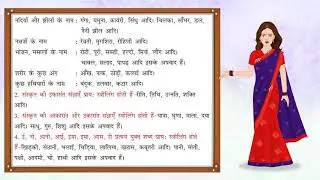 नदियों और झीलों के नाम : गंगा, यमुना, कावेरी, सिंधु आदि। चिल्का, साँभर, डल,
नैनी झील आदि।
नक्षत्रों के नाम : रेवती, मृगशिरा, रोहिणी आदि।
भोजन, मसालों के नाम : रोटी, पूरी, सब्जी, हल्दी, मिर्च, लौंग आदि।
चावल, सलाद, पापड़ आदि इसके अपवाद हैं।
शरीर के कुछ अंग : आँख, नाक, ठोड़ी, कलाई आदि।
कुछ हथियारों के नाम : बंदूक, तलवार, कटार आदि।
2. संस्कृत की इकारांत संज्ञाएँ प्रायः स्त्रीलिंग होती हैं-रीति, तिथि, उन्नति, शक्ति
आदि।
3. संस्कृत की आकारांत और उकारांत संज्ञाएँ स्त्रीलिंग होती हैं-यात्रा, घृणा, माला, दया
आदि। साधु, गुरु, शिशु आदि इसके अपवाद हैं।
4. ई, नी, आनी, आई, इया, इमा, आस, री प्रत्यय युक्त शब्द प्रायः स्त्रीलिंग होते
हैं-खिड़की, सेठानी, पढ़ाई, चिड़िया, लालिमा, खटास, कबूतरी आदि। पानी, मोती,
पक्षी, आदमी, घी, हाथी आदि इसके अपवाद हैं।